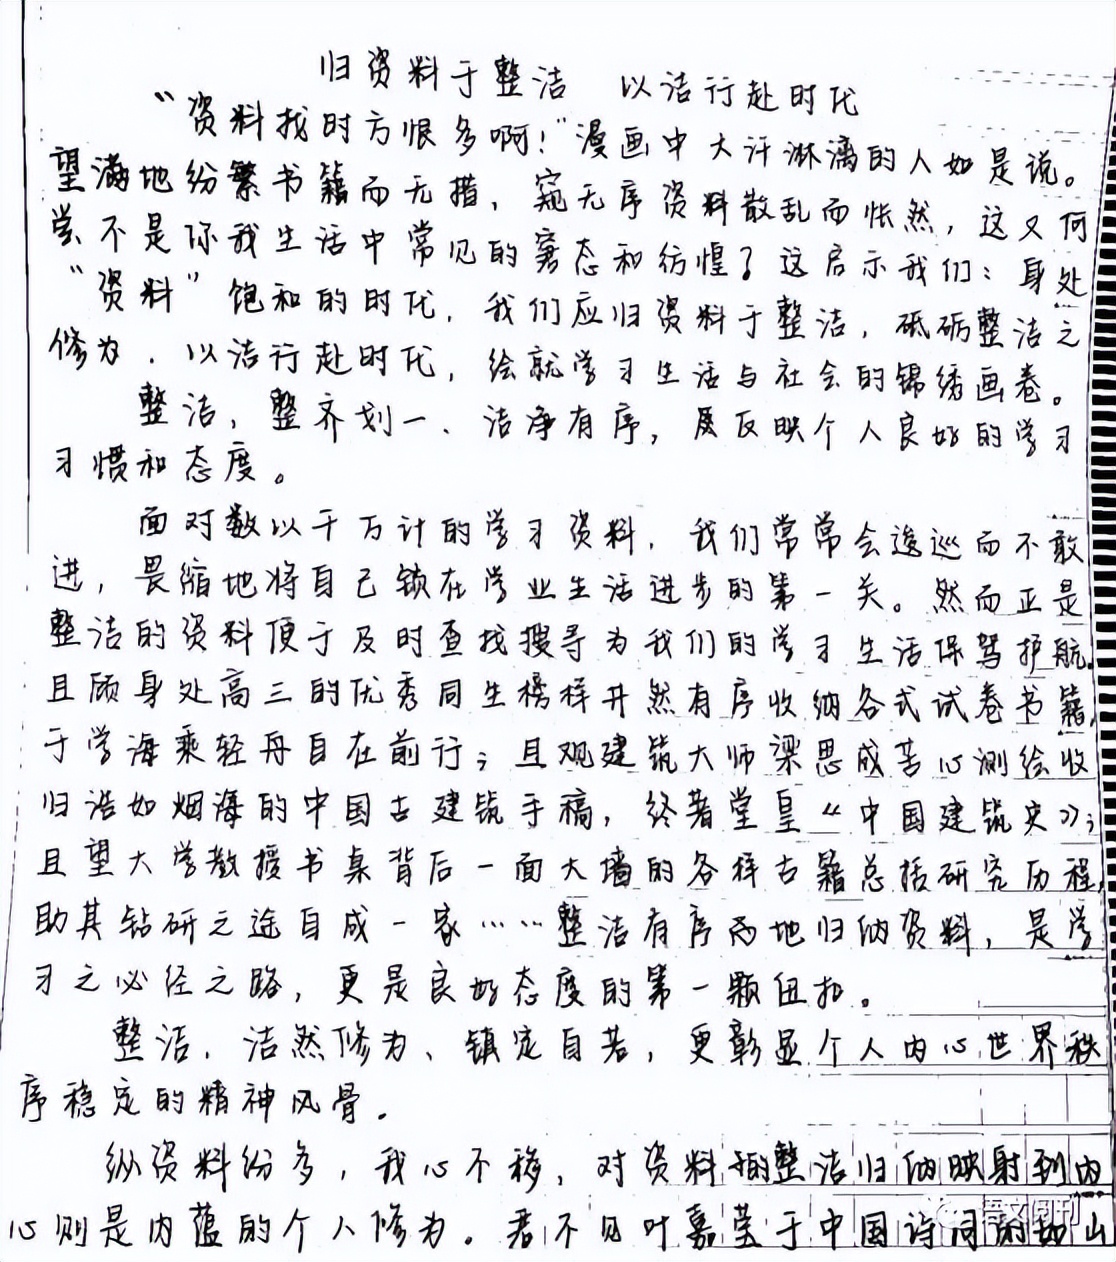 归资料于整洁 以洁行赴时代
“资料找时方恨多啊！”漫画中大汗淋漓的人如是说。
望满地纷繁书籍而无措，窥无序资料散乱而怅然，这又何
尝不是你我生活中常见的窘态和彷惶？这启示我们：身处
“资料”饱和的时代，我们应归资料于整洁，砥砺整洁之
修为，以洁行赴时代，绘就学习生活与社会的锦绣画卷。
整洁，整齐划一、洁净有序，反映个人良好的学习
习惯和态度。
面对数以千万计的学习资料，我们常常会逡巡而不敢
进，畏缩地将自己锁在学业生活进步的第一关。然而正是
整洁的资料便于及时查找搜寻为我们的学习生活保驾护航。
且顾身处高三的优秀同生榜样井然有序收纳各式试卷书籍，
于学海乘轻舟自在前行；且观建筑大师梁思成苦心测绘收
归浩如烟海的中国古建筑手稿，终著堂皇《中国建筑史》；
且望大学教授书桌背后一面大墙的各样古籍总括研究历程，
助其钻研之途自成一家……整洁有序地归纳资料，是学
习之必经之路，更是良好态度的第一颗纽扣。
整洁，洁然修为、镇定自若，更彰显个人内心世界秩
序稳定的精神风骨。
纵资料纷多，我心不移，对资料的整洁归纳映射到内
心则是内蕴的个人修为。君不见叶嘉莹于中国诗词的如山
语文阅刊